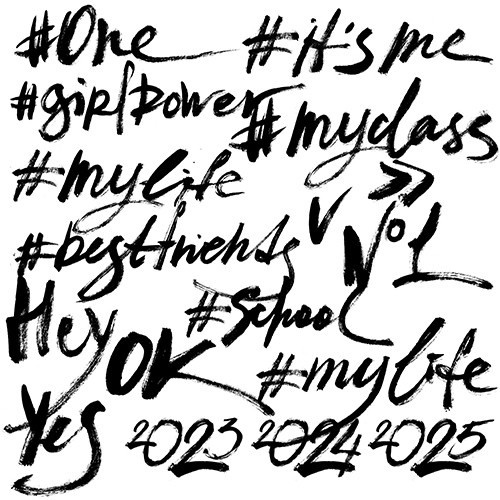 #One
#it's me
#girlpower
#myclass
#mylife
>>
V
#bestfriends
№1
#School
Hey
OK
#mylife
Yes
2023 2024 2025